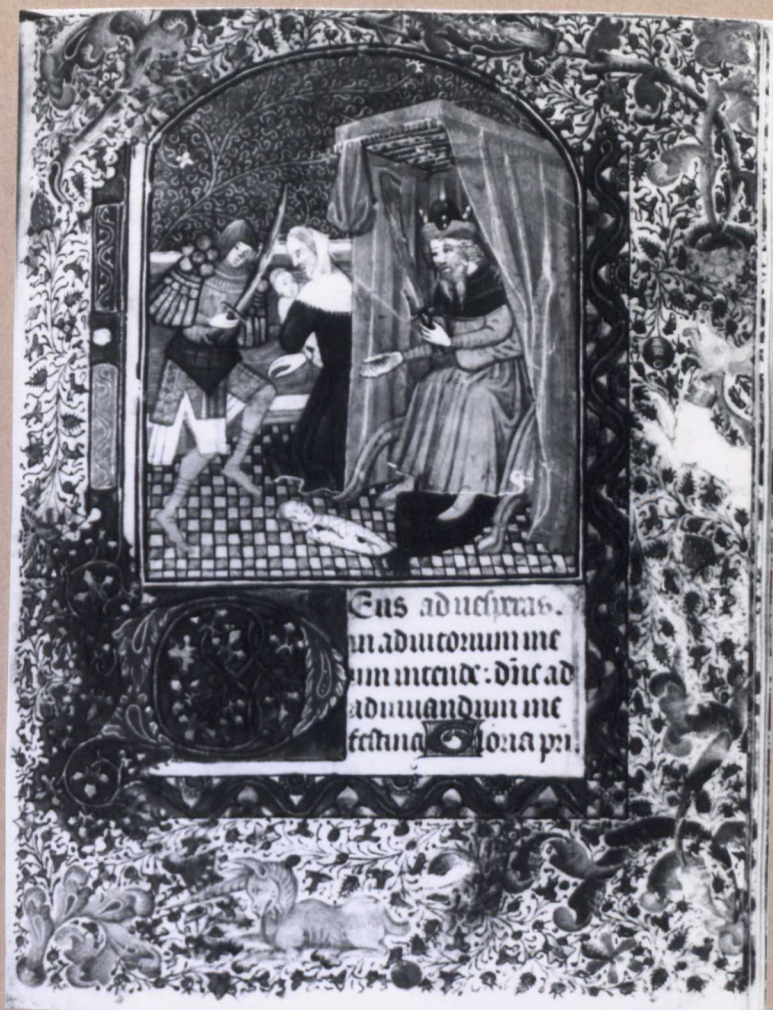 Eus ad vesperas.
in adiutorium me
um intende : dñe ad
adiuuandum me
festina Gloria pri.